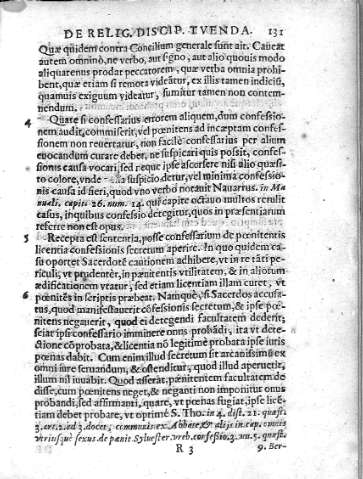 DE RELIG. DISCIP. TVENDA. 131
Quæ quidem contra Concilium generale sunt ait. Caueat
autem omninò, ne verbo, aut signo, aut alio quouis modo
aliquatenus prodat peccatorem, quæ verba omnia prohi-
bent, quæ etiam si remota videãtur, ex illis tamen indiciũ,
quamuis exiguum videatur, sumitur tamen non contem-
nendum.
4 Quare si confessarius errorem aliquem, dum confessio-
nem audit, commiserit, vel pœnitens ad incœptam confes-
sionem non reuertatur, non facilè confessarius per alium
euocandum curare debet, ne suspicari quis possit, confes-
sionis causa vocari, sed reque ipse ascersere nisi alio quæsi-
to colore, vnde suspicio detur, vel minima confessio-
nis causa id fieri, quod vno verbo notauit Nauarrus. in Ma
nuali. capit. 26. num. 14. qui capite octauo multos retulit
casus, in quibus confessio detegitur, quos in præsentiarum
referre non est opus.
5 Recepta est sententia, posse confessarium de pœnitentis
licentia confessionis secretum aperire. In quo quidem ca-
su oportet Sacerdotẽ cautionem adhibere, vt in re tãti pe-
riculi, vt prudenter, in pœnitentis vtilitatem, & in aliorum
ædificationem vtatur, sed etiam licentiam illam curet, vt
6 pœnitẽs in scriptis præbeat. Namque, si Sacerdos accusa-
tus, quod manifestauerit cõfessionis secretum, & ipse pœ-
nitens negauerit, quod ei detegendi facultatem dederit;
sciat ipsi confessario imminere onus probãdi, ita vt dete-
ctione cõprobata, & licentia nõ legitimè probata ipse iuris
pœnas dabit. Cum enim illud secretum sit arcanissimũ ex
omni iure seruandum, & ostenditur, quod illud aperuerit,
illum nil iuuabit. Quod asserat, pœnitentem facultatem de
disse, cum pœnitens neget, & neganti non imponitur onus
probandi, sed affirmanti, quare, vt pœnas fugiat, ipse licẽ-
tiam debet probare, vt optimè S. Tho. in 4. dist. 21. quæst.
3. art. 2. ad 3. docet, communis ex Abbate & alijs in cap. omnis
vtriusque sexus de pœnit. Syluester. verb. confessio. 3. nu. 5. quæst.
R 3 9. Ber-